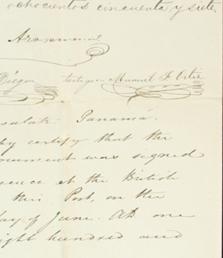 ochocientos cincuenta y siete
Manuel J. Ortiz
Panamá.
by certify that the
ument was signed
ence at the British
this Port, on the
day of June. A.D. one
ight hundred and